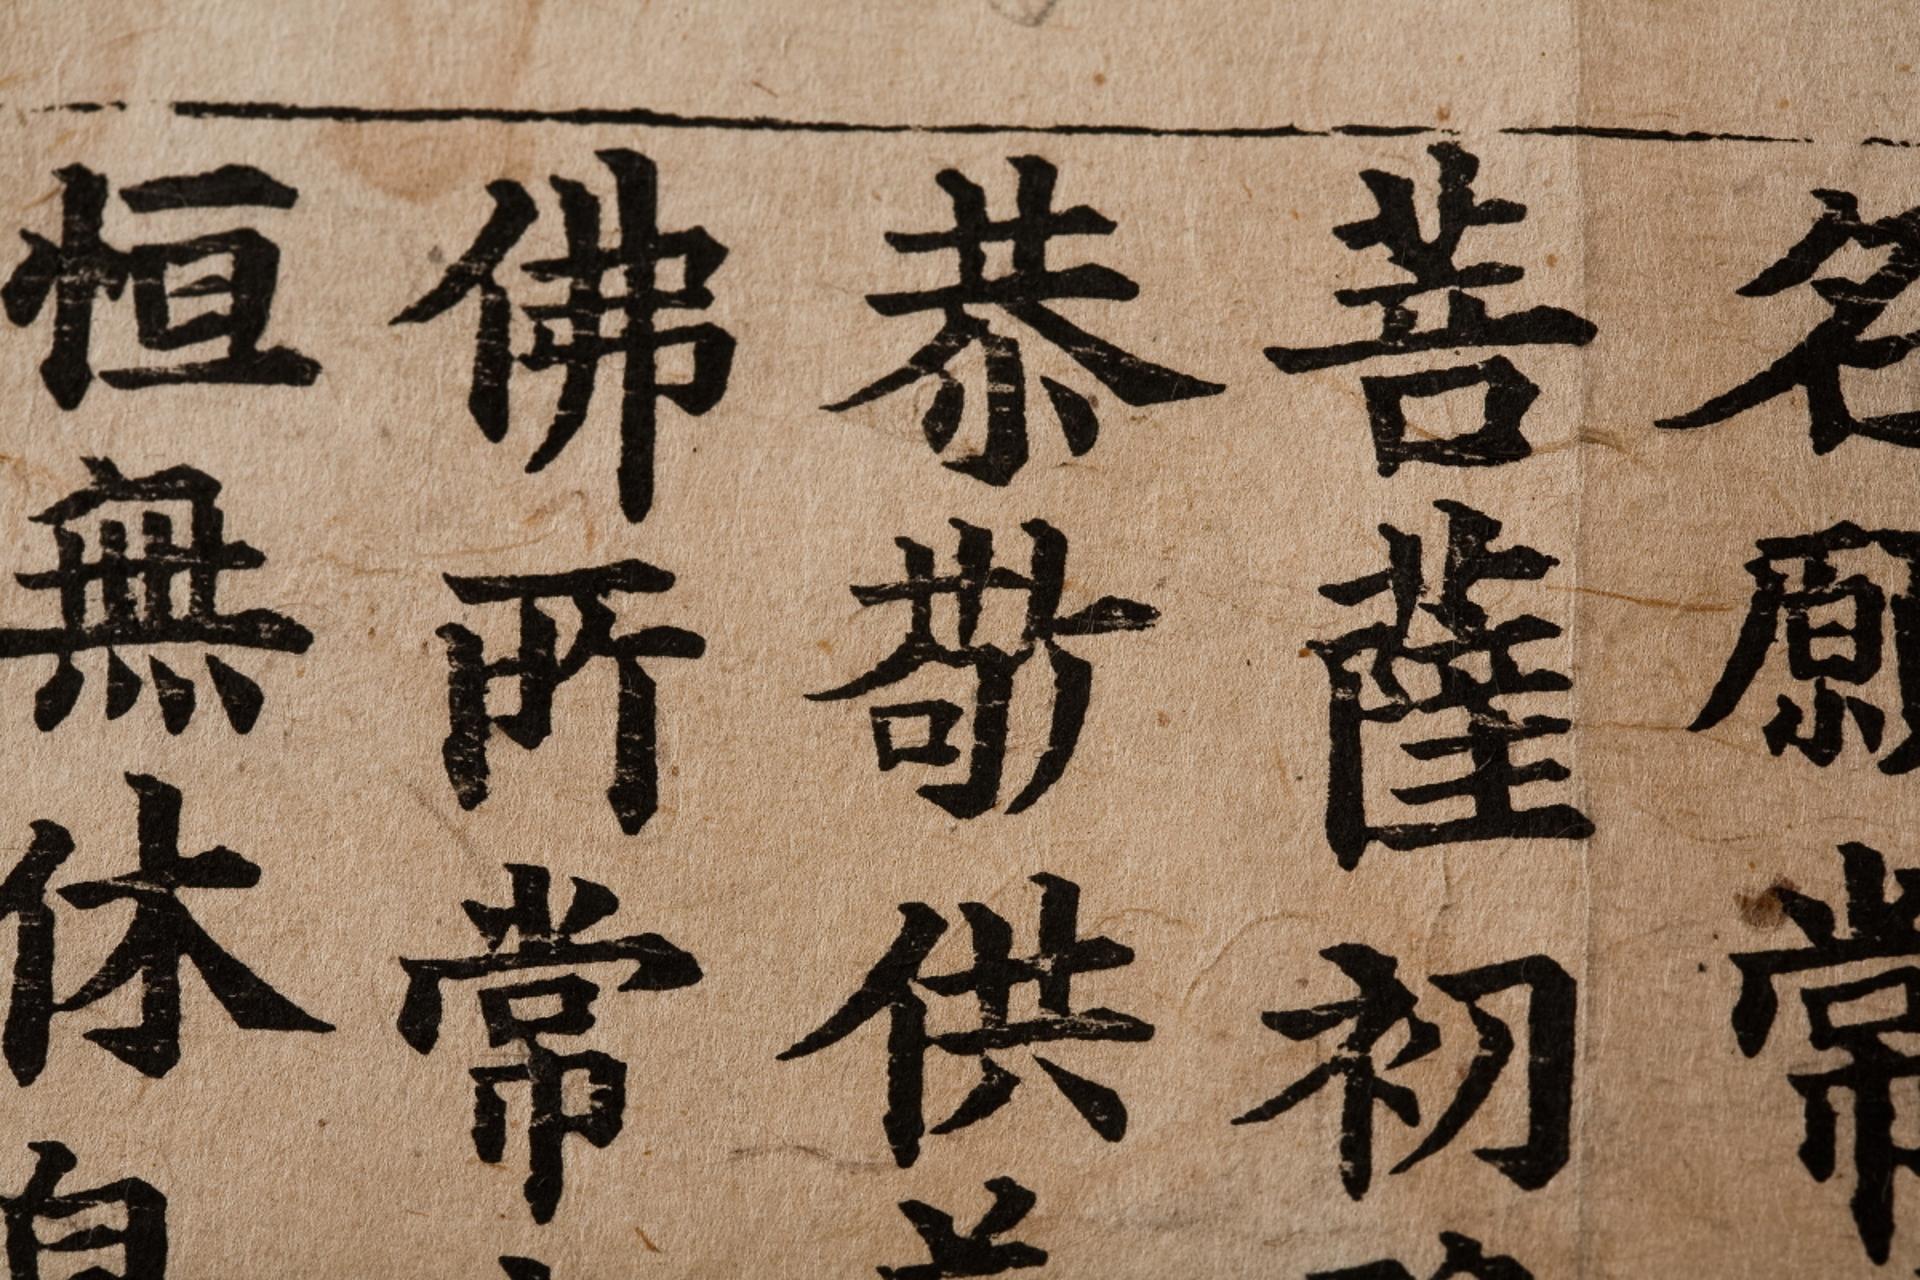 名願常
菩薩初
恭敬供
佛所常
恒無休